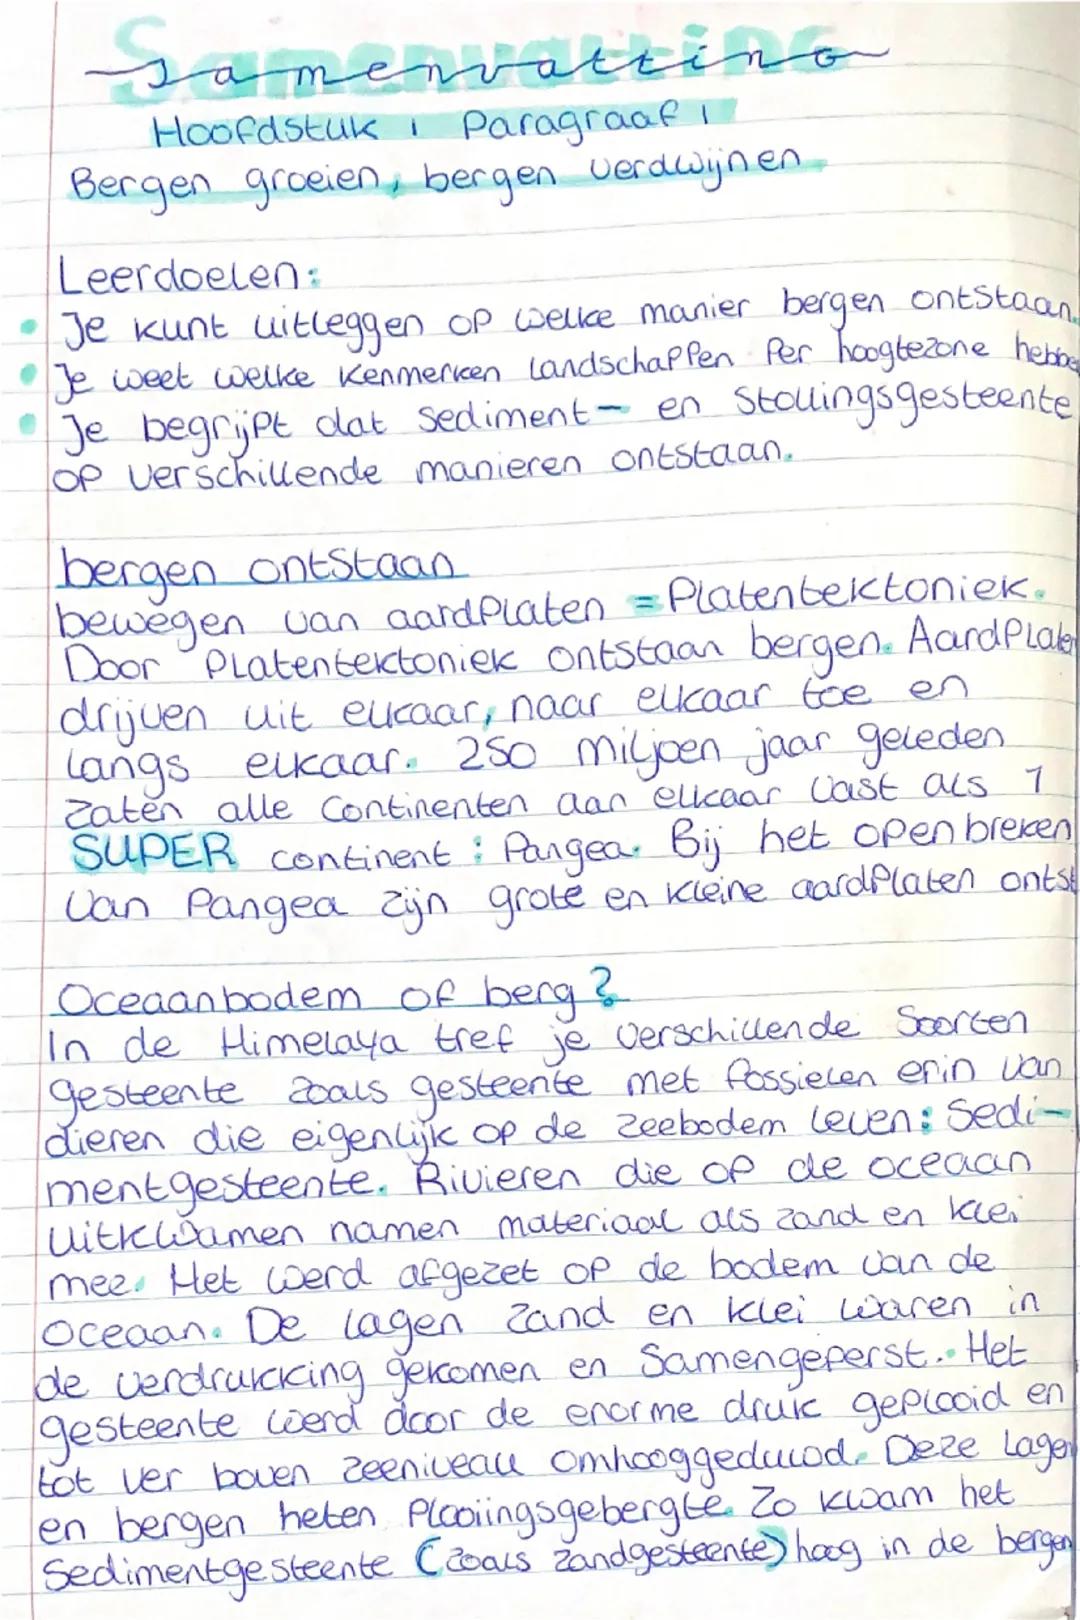 Samenvatting
Hoofdstuk 1 Paragraaf 1
Bergen groeien, bergen verdwijnen
Leerdoelen:
Je kunt uitleggen op welke manier bergen ontstaan.
Je weet welke kenmerken landschappen per hoogtezone hebbe
Je begrijpt dat Sediment- en Stollingsgesteente
op verschillende manieren ontstaan.
bergen ontstaan
bewegen van aardplaten = Platentektoniek.
Door Platentektoniek ontstaan bergen. Aardplaten
drijven uit elkaar, naar elkaar toe en
langs elkaar. 250 miljoen jaar geleden
zaten alle continenten aan elkaar vast als 1
SUPER continent: Pangea. Bij het openbreken
van Pangea zijn grote en kleine aardplaten ontst
Oceaanbodem of berg?
In de Himelaya tref je verschillende soorten
gesteente zoals gesteente met fossielen erin van
dieren die eigenlijk op de zeebodem leven: Sedi-
mentgesteente. Rivieren die op de oceaan
uitkwamen namen materiaal als zand en klei
mee. Het werd afgezet op de bodem van de
oceaan. De lagen zand en klei waren in
de verdrukking gekomen en samengeperst. Het
gesteente werd door de enorme druk geplooid en
tot ver boven zeeniveau omhooggeduwd. Deze lagen
en bergen heten Plooiingsgebergte. Zo kwam het
Sedimentgesteente (zoals zandgesteente) hoog in de bergen